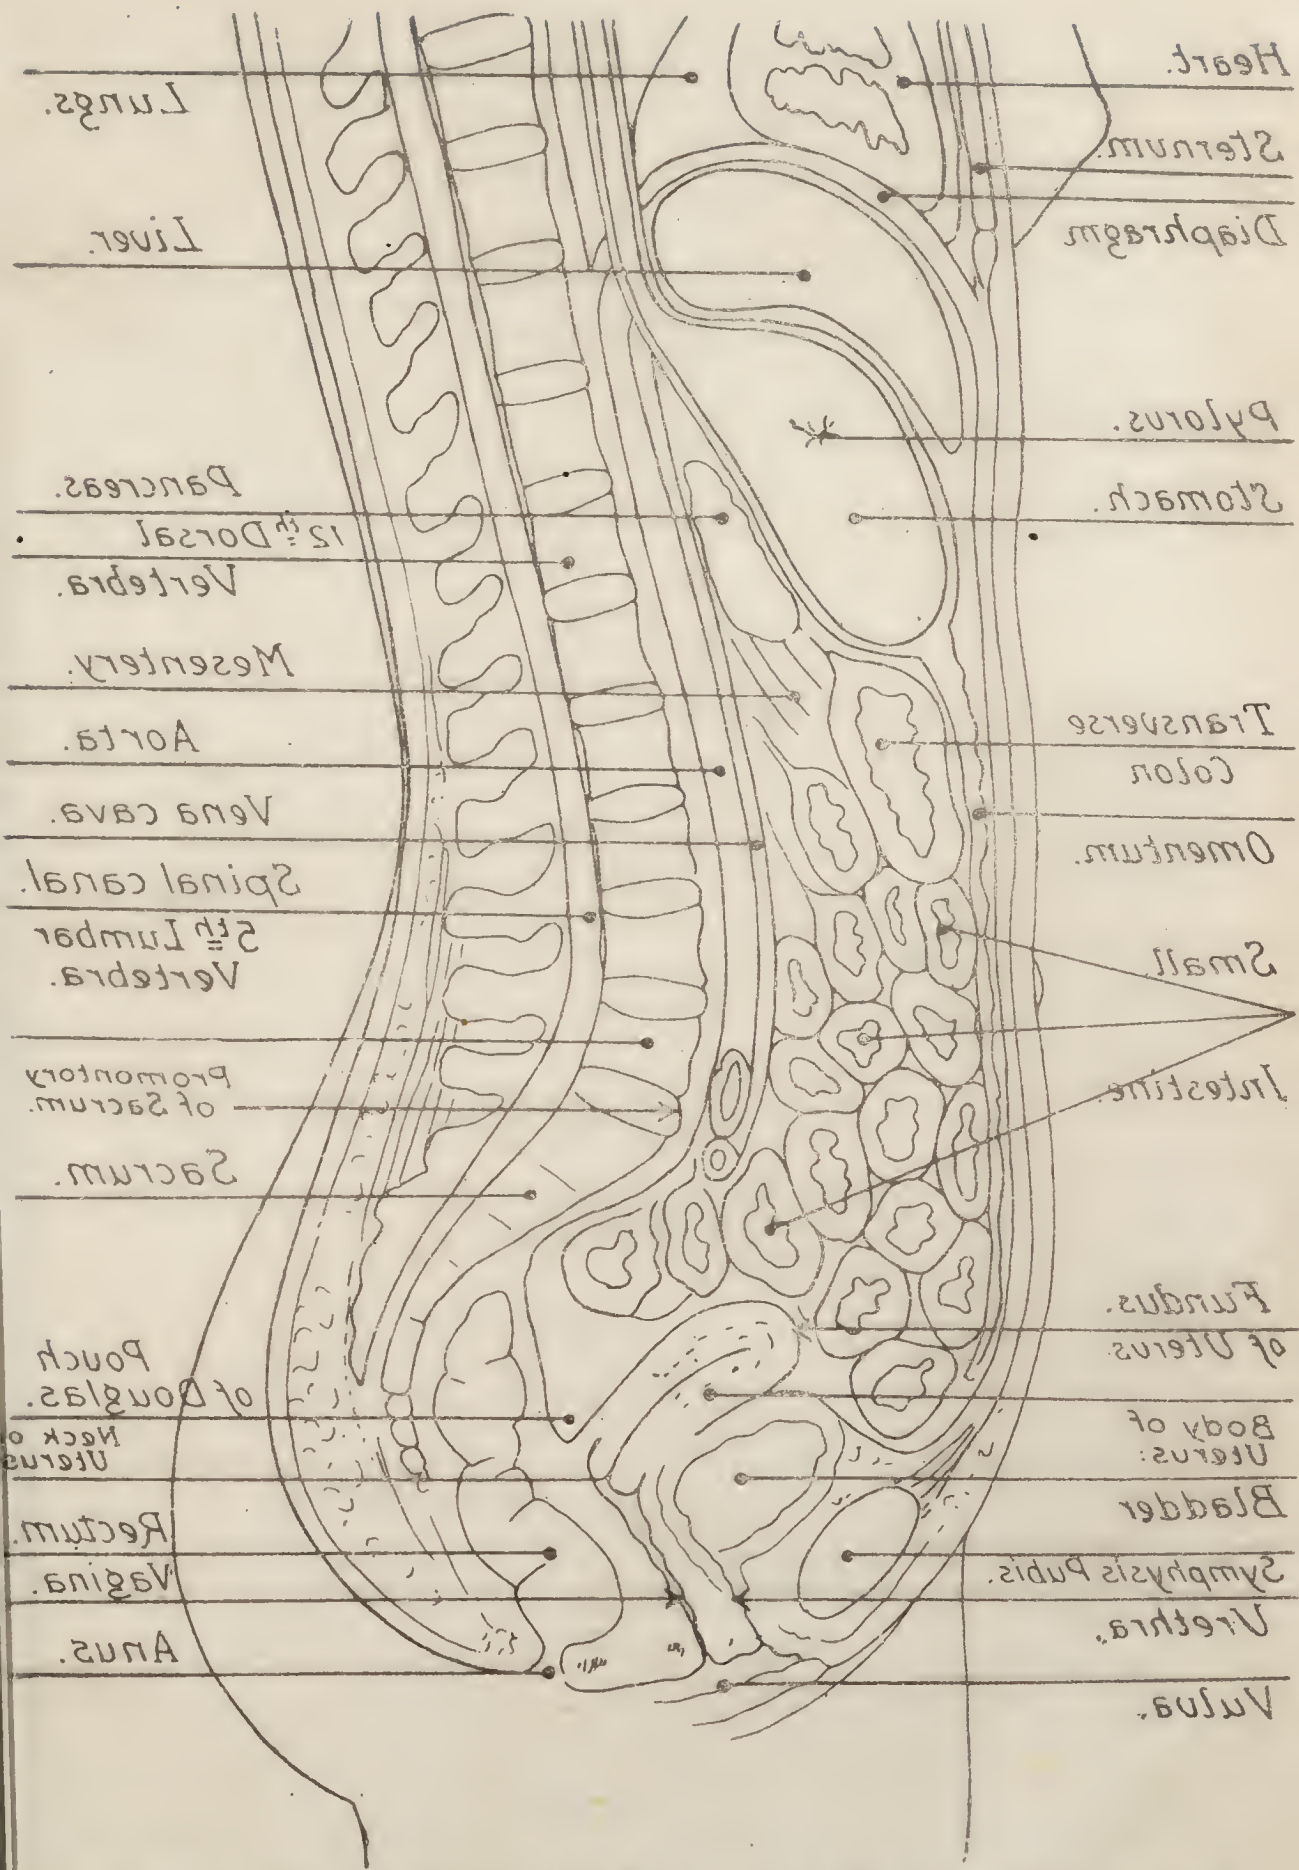 Lungs.
Liver.
Pancreas.
12th Dorsal
Vertebra.
Mesentery.
Aorta.
Vena cava.
Spinal canal.
5th Lumbar
Vertebra.
Promontory
of Sacrum.
Sacrum.
Pouch
of Douglas.
Neck o
Uterus
Rectum.
Vagina.
Anus.
Heart.
Sternum.
Diaphragm
Pylorus.
Stomach.
Transverse
Colon
Omentum.
Small
Intestine.
Fundus.
of Uterus.
Body of
Uterus:
Bladder
Symphysis Pubis.
Urethra.
Vulva.